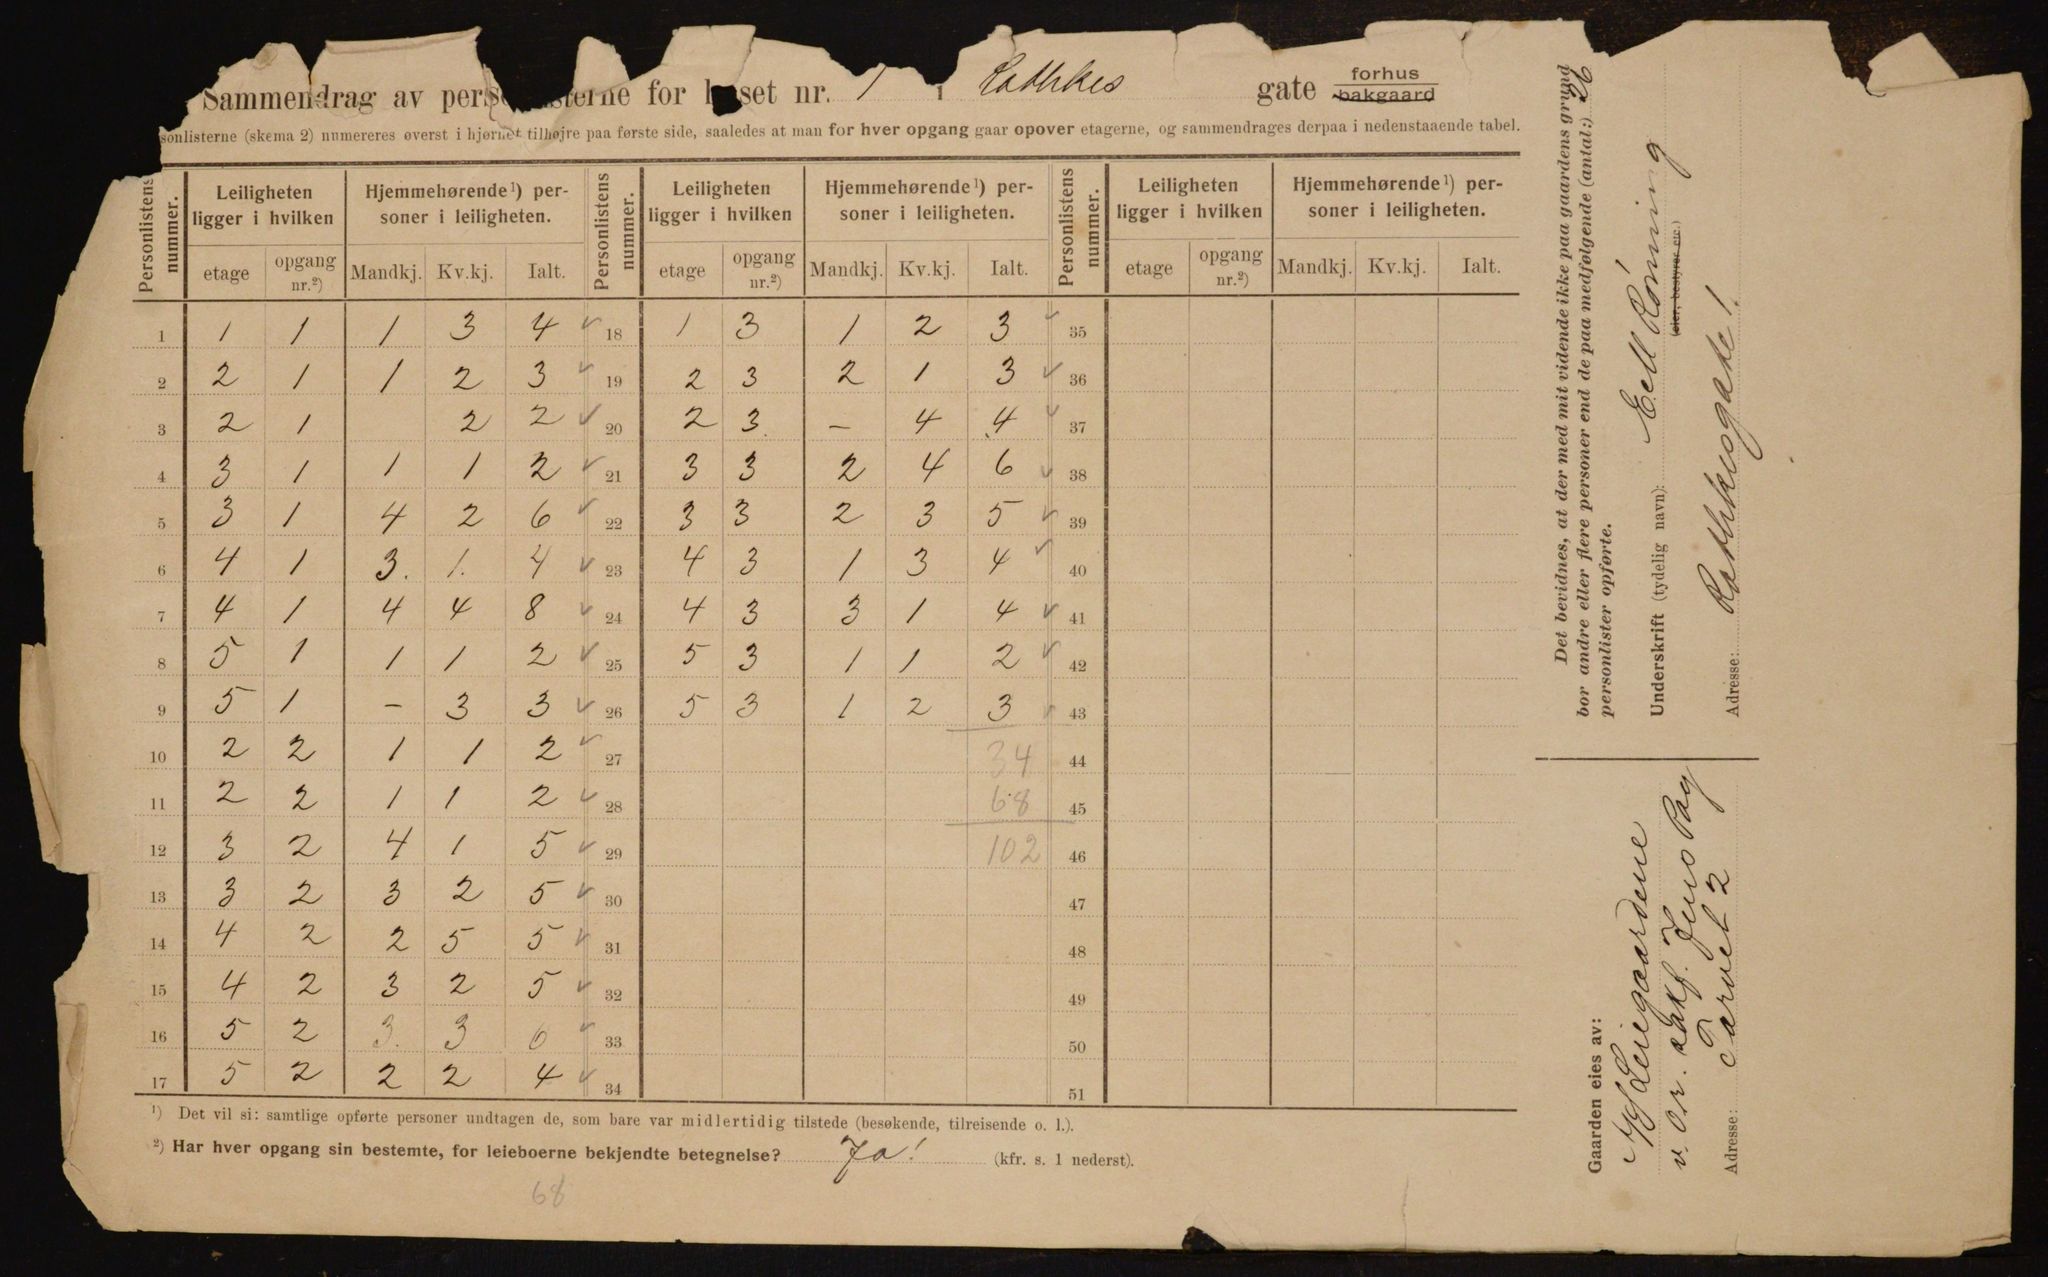 Sammendrag av pers sterne for h set nr. 1 i Rathkes gate forhus bakgaard
sonlisterne (skema 2) numereres øverst i hjørnet tilhøjre paa første side, saaledes at man for hver opgang gaar opover etagerne, og sammendrages derpaa i nedenstaaende tabel.
Personlistens nummer. Leiligheten ligger i hvilken Hjemmehørende¹) personer i leiligheten. Personlistens nummer. Leiligheten ligger i hvilken Hjemmehørende¹) personer i leiligheten. Personlistens nummer. Leiligheten ligger i hvilken Hjemmehørende¹) personer i leiligheten.
etage opgang nr.²) Mandkj. Kv.kj. Ialt. etage opgang nr.²) Mandkj. Kv.kj. Ialt. etage opgang nr.²) Mandkj. Kv.kj. Ialt.
1 1 1 1 3 4 ✓ 18 1 3 1 2 3 ✓ 35
2 2 1 1 2 3 ✓ 19 2 3 2 1 3 ✓ 36
3 2 1 2 2 ✓ 20 2 3 – 4 4 ✓ 37
4 3 1 1 1 2 ✓ 21 3 3 2 4 6 ✓ 38
5 3 1 4 2 6 ✓ 22 3 3 2 3 5 ✓ 39
6 4 1 3. 1. 4 ✓ 23 4 3 1 3 4 ✓ 40
7 4 1 4 4 8 ✓ 24 4 3 3 1 4 ✓ 41
8 5 1 1 1 2 ✓ 25 5 3 1 1 2 ✓ 42
9 5 1 – 3 3 ✓ 26 5 3 1 2 3 ✓ 43
10 2 2 1 1 2 ✓ 27 34 44
11 2 2 1 1 2 ✓ 28 68 45
12 3 2 4 1 5 ✓ 29 102 46
13 3 2 3 2 5 ✓ 30 47
14 4 2 2 5 5 ✓ 31 48
15 4 2 3 2 5 ✓ 32 49
16 5 2 3. 3 6 ✓ 33 50
17 5 2 2 2 4 ✓ 34 51
¹) Det vil si: samtlige opførte personer undtagen de, som bare var midlertidig tilstede (besøkende, tilreisende o. l.).
²) Har hver opgang sin bestemte, for leieboerne bekjendte betegnelse? Ja! (kfr. s. 1 nederst).
68
Det bevidnes, at der med mit vidende ikke paa gaardens grund
bor andre eller flere personer end de paa medfølgende (antal:) 26
personlister opførte.
Underskrift (tydelig navn): E. M Rönning
(eier, bestyrer etc.)
Adresse: Rathkesgate 1.
Gaarden eies av:
Leiegaardene
v. o.r. sakf. Jens Pay
Adresse: Torvet 2